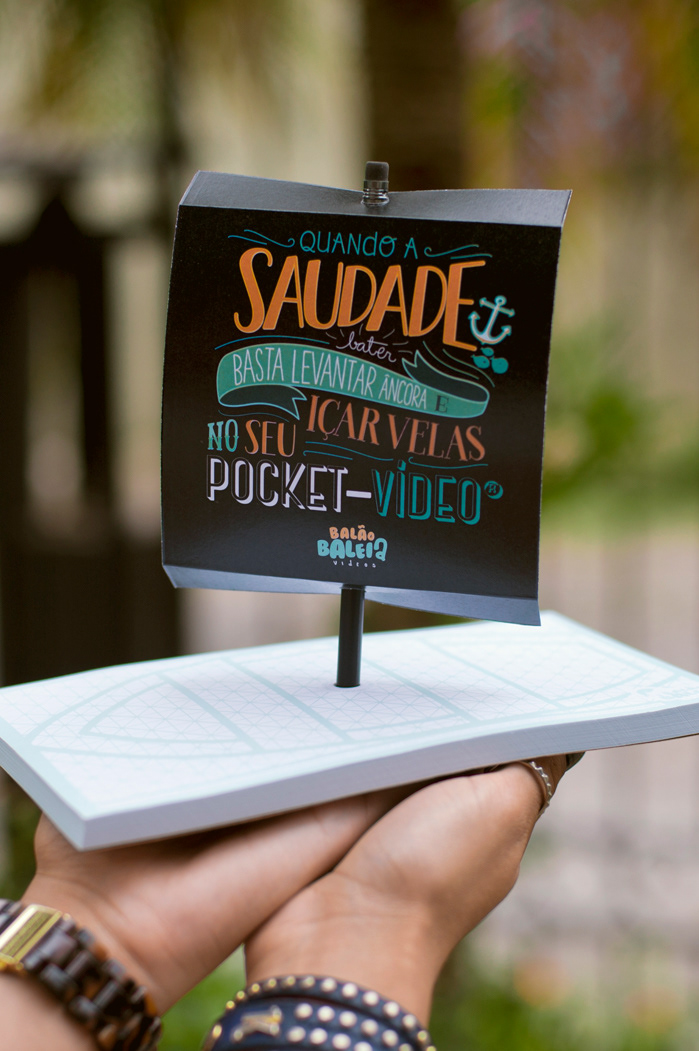 QUANDO A
SAUDADE
bater
BASTA LEVANTAR ÂNCORA E
IÇAR VELAS
NO SEU
POCKET-VÍDEO®
BALÃO
BALEIA
VIDEOS